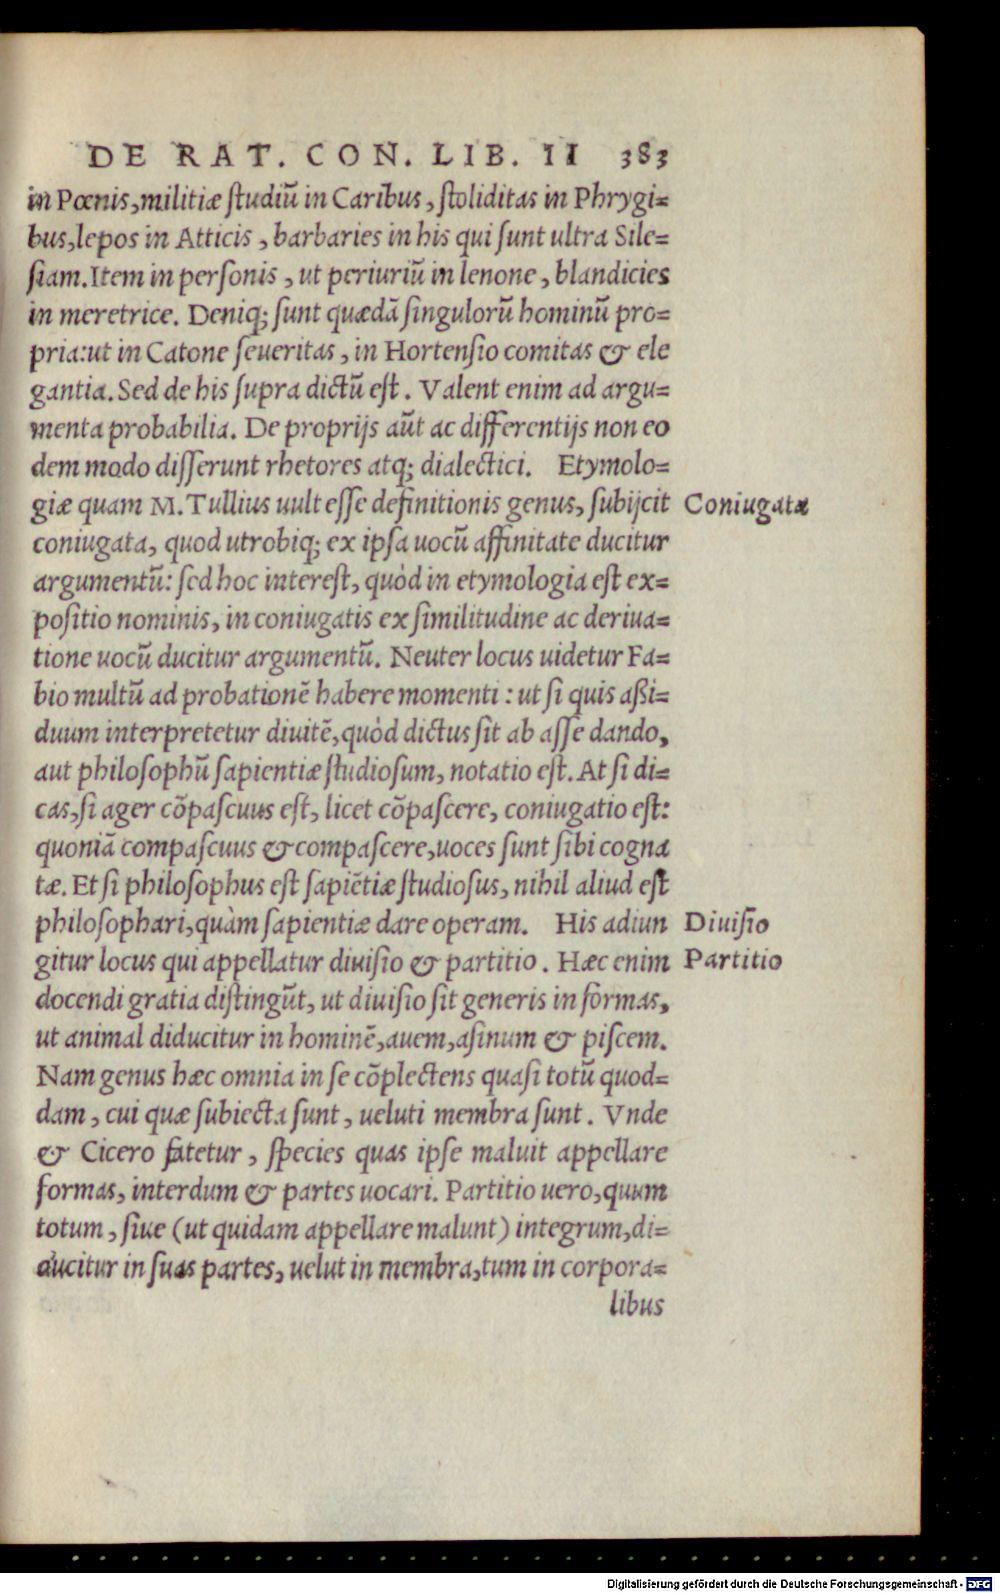 DE RAT. CON. LIB. II 383
in Pœnis, militiæ studiũ in Caribus, stoliditas in Phrygi=
bus, lepos in Atticis, barbaries in his qui sunt ultra Sile=
siam. Item in personis, ut periuriũ in lenone, blandicies
in meretrice. Deniq; sunt quædã singulorũ hominũ pro=
pria: ut in Catone seueritas, in Hortensio comitas & ele
gantia. Sed de his supra dictũ est. Valent enim ad argu=
menta probabilia. De proprijs aũt ac differentijs non eo
dem modo disserunt rhetores atq; dialectici. Etymolo=
giæ quam M. Tullius uult esse definitionis genus, subijcit Coniugata
coniugata, quod utrobiq; ex ipsa uocũ affinitate ducitur
argumentũ: sed hoc interest, quòd in etymologia est ex=
positio nominis, in coniugatis ex similitudine ac deriua=
tione uocũ ducitur argumentũ. Neuter locus uidetur Fa=
bio multũ ad probationẽ habere momenti: ut si quis aßi=
duum interpretetur diuitẽ, quòd dictus sit ab asse dando,
aut philosophũ sapientiæ studiosum, notatio est. At si di=
cas, si ager cõpascuus est, licet cõpascere, coniugatio est:
quoniã compascuus & compascere, uoces sunt sibi cogna
tæ. Et si philosophus est sapiẽtiæ studiosus, nihil aliud est
philosophari, quàm sapientiæ dare operam. His adiun Diuisio
gitur locus qui appellatur diuisio & partitio. Hæc enim Partitio
docendi gratia distingũt, ut diuisio sit generis in formas,
ut animal diducitur in hominẽ, auem, asinum & piscem.
Nam genus hæc omnia in se cõplectens quasi totũ quod=
dam, cui quæ subiecta sunt, ueluti membra sunt. Vnde
& Cicero fatetur, species quas ipse maluit appellare
formas, interdum & partes uocari. Partitio uero, quum
totum, siue (ut quidam appellare malunt) integrum, di=
ducitur in suas partes, uelut in membra, tum in corpora=
libus
Digitalisierung gefördert durch die Deutsche Forschungsgemeinschaft - DFG